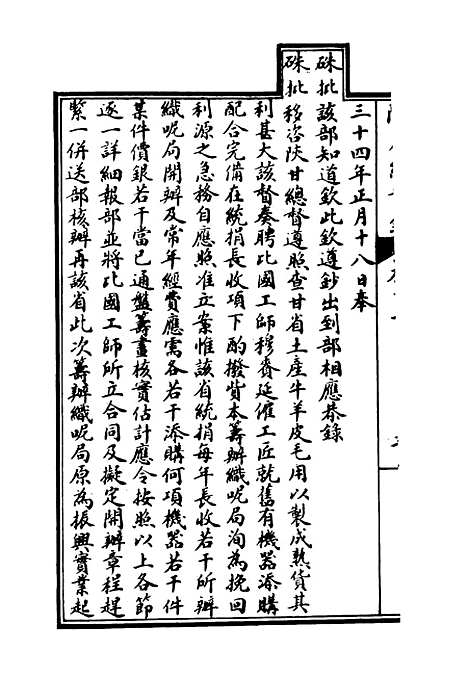 三十四年正月十八日奉
硃批該部知道欽此欽遵鈔出到部相應恭錄
硃批移咨陝甘總督遵照查甘省土產牛羊皮毛用以製成熟貨其
利甚大該督奏聘比國工師穆賚延僱工匠就舊有機器添購
配合完備在統捐長收項下酌撥貲本籌辦織呢局洵為挽回
利源之急務自應照准立案惟該省統捐每年長收若干所辦
織呢局開辦及常年經費應需各若干添購何項機器若干件
某件價銀若干當已通盤籌畫核實估計應令按照以上各節
逐一詳細報部並將比國工師所立合同及擬定開辦章程趕
緊一併送部核辦再該省此次籌辦織呢局原為振興實業起